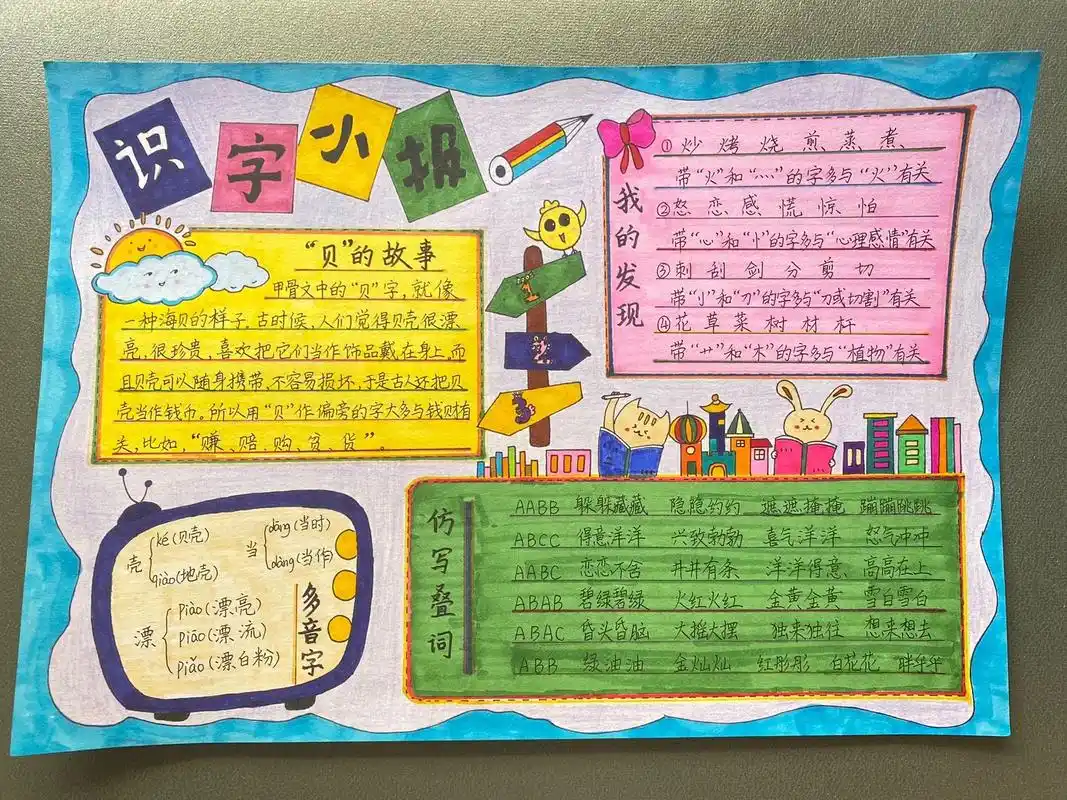 识字小报
“贝”的故事
甲骨文中的“贝”字,就像
一种海贝的样子。古时候,人们觉得贝壳很漂
亮,很珍贵、喜欢把它们当作饰品戴在身上,而
且贝壳可以随身携带,不容易损坏,于是古人还把贝
壳当作钱币。所以用“贝”作偏旁的字大多与钱财有
关,比如,“赚、赔、购、贫、货”。
1
2
3
我的发现
①炒 烤 烧 煎、蒸、煮、
带“火”和“灬”的字多与“火”有关
②怒 恋 感 慌 惊 怕
带“心”和“忄”的字多与“心理感情”有关
③刺 刮 剑 分 剪 切
带“刂”和“刀”的字多与“刀或切割”有关
④花 草 菜 树 材 杆
带“艹”和“木”的字多与“植物”有关
多音字
壳
ké(贝壳)
qiào(地壳)
当
dāng(当时)
dàng(当作)
漂
piào(漂亮)
piāo(漂流)
piǎo(漂白粉)
仿写叠词
AABB 躲躲藏藏 隐隐约约 遮遮掩掩 蹦蹦跳跳
ABCC 得意洋洋 兴致勃勃 喜气洋洋 怒气冲冲
AABC 恋恋不舍 井井有条 洋洋得意、高高在上
ABAB 碧绿碧绿 火红火红 金黄金黄 雪白雪白
ABAC 昏头昏脑 大摇大摆 独来独往 想来想去
ABB 绿油油 金灿灿 红彤彤 白花花 胖乎乎